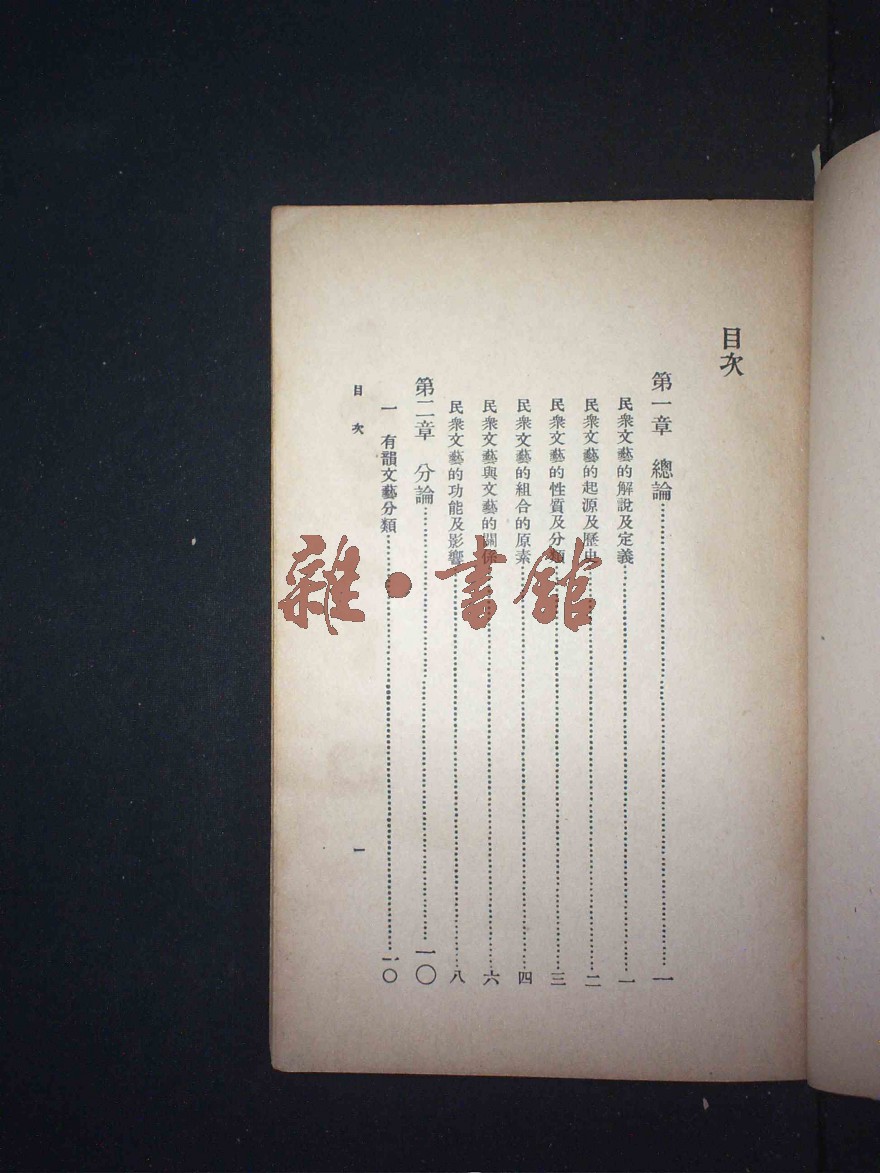 目次
第一章 總論……一
民衆文藝的解說及定義……一
民衆文藝的起源及歷史……二
民衆文藝的性質及分類……三
民衆文藝的組合的原素……四
民衆文藝與文藝的關係……六
民衆文藝的功能及影響……八
第二章 分論……一〇
一 有韻文藝分類……一〇
目次
一
雜·書館